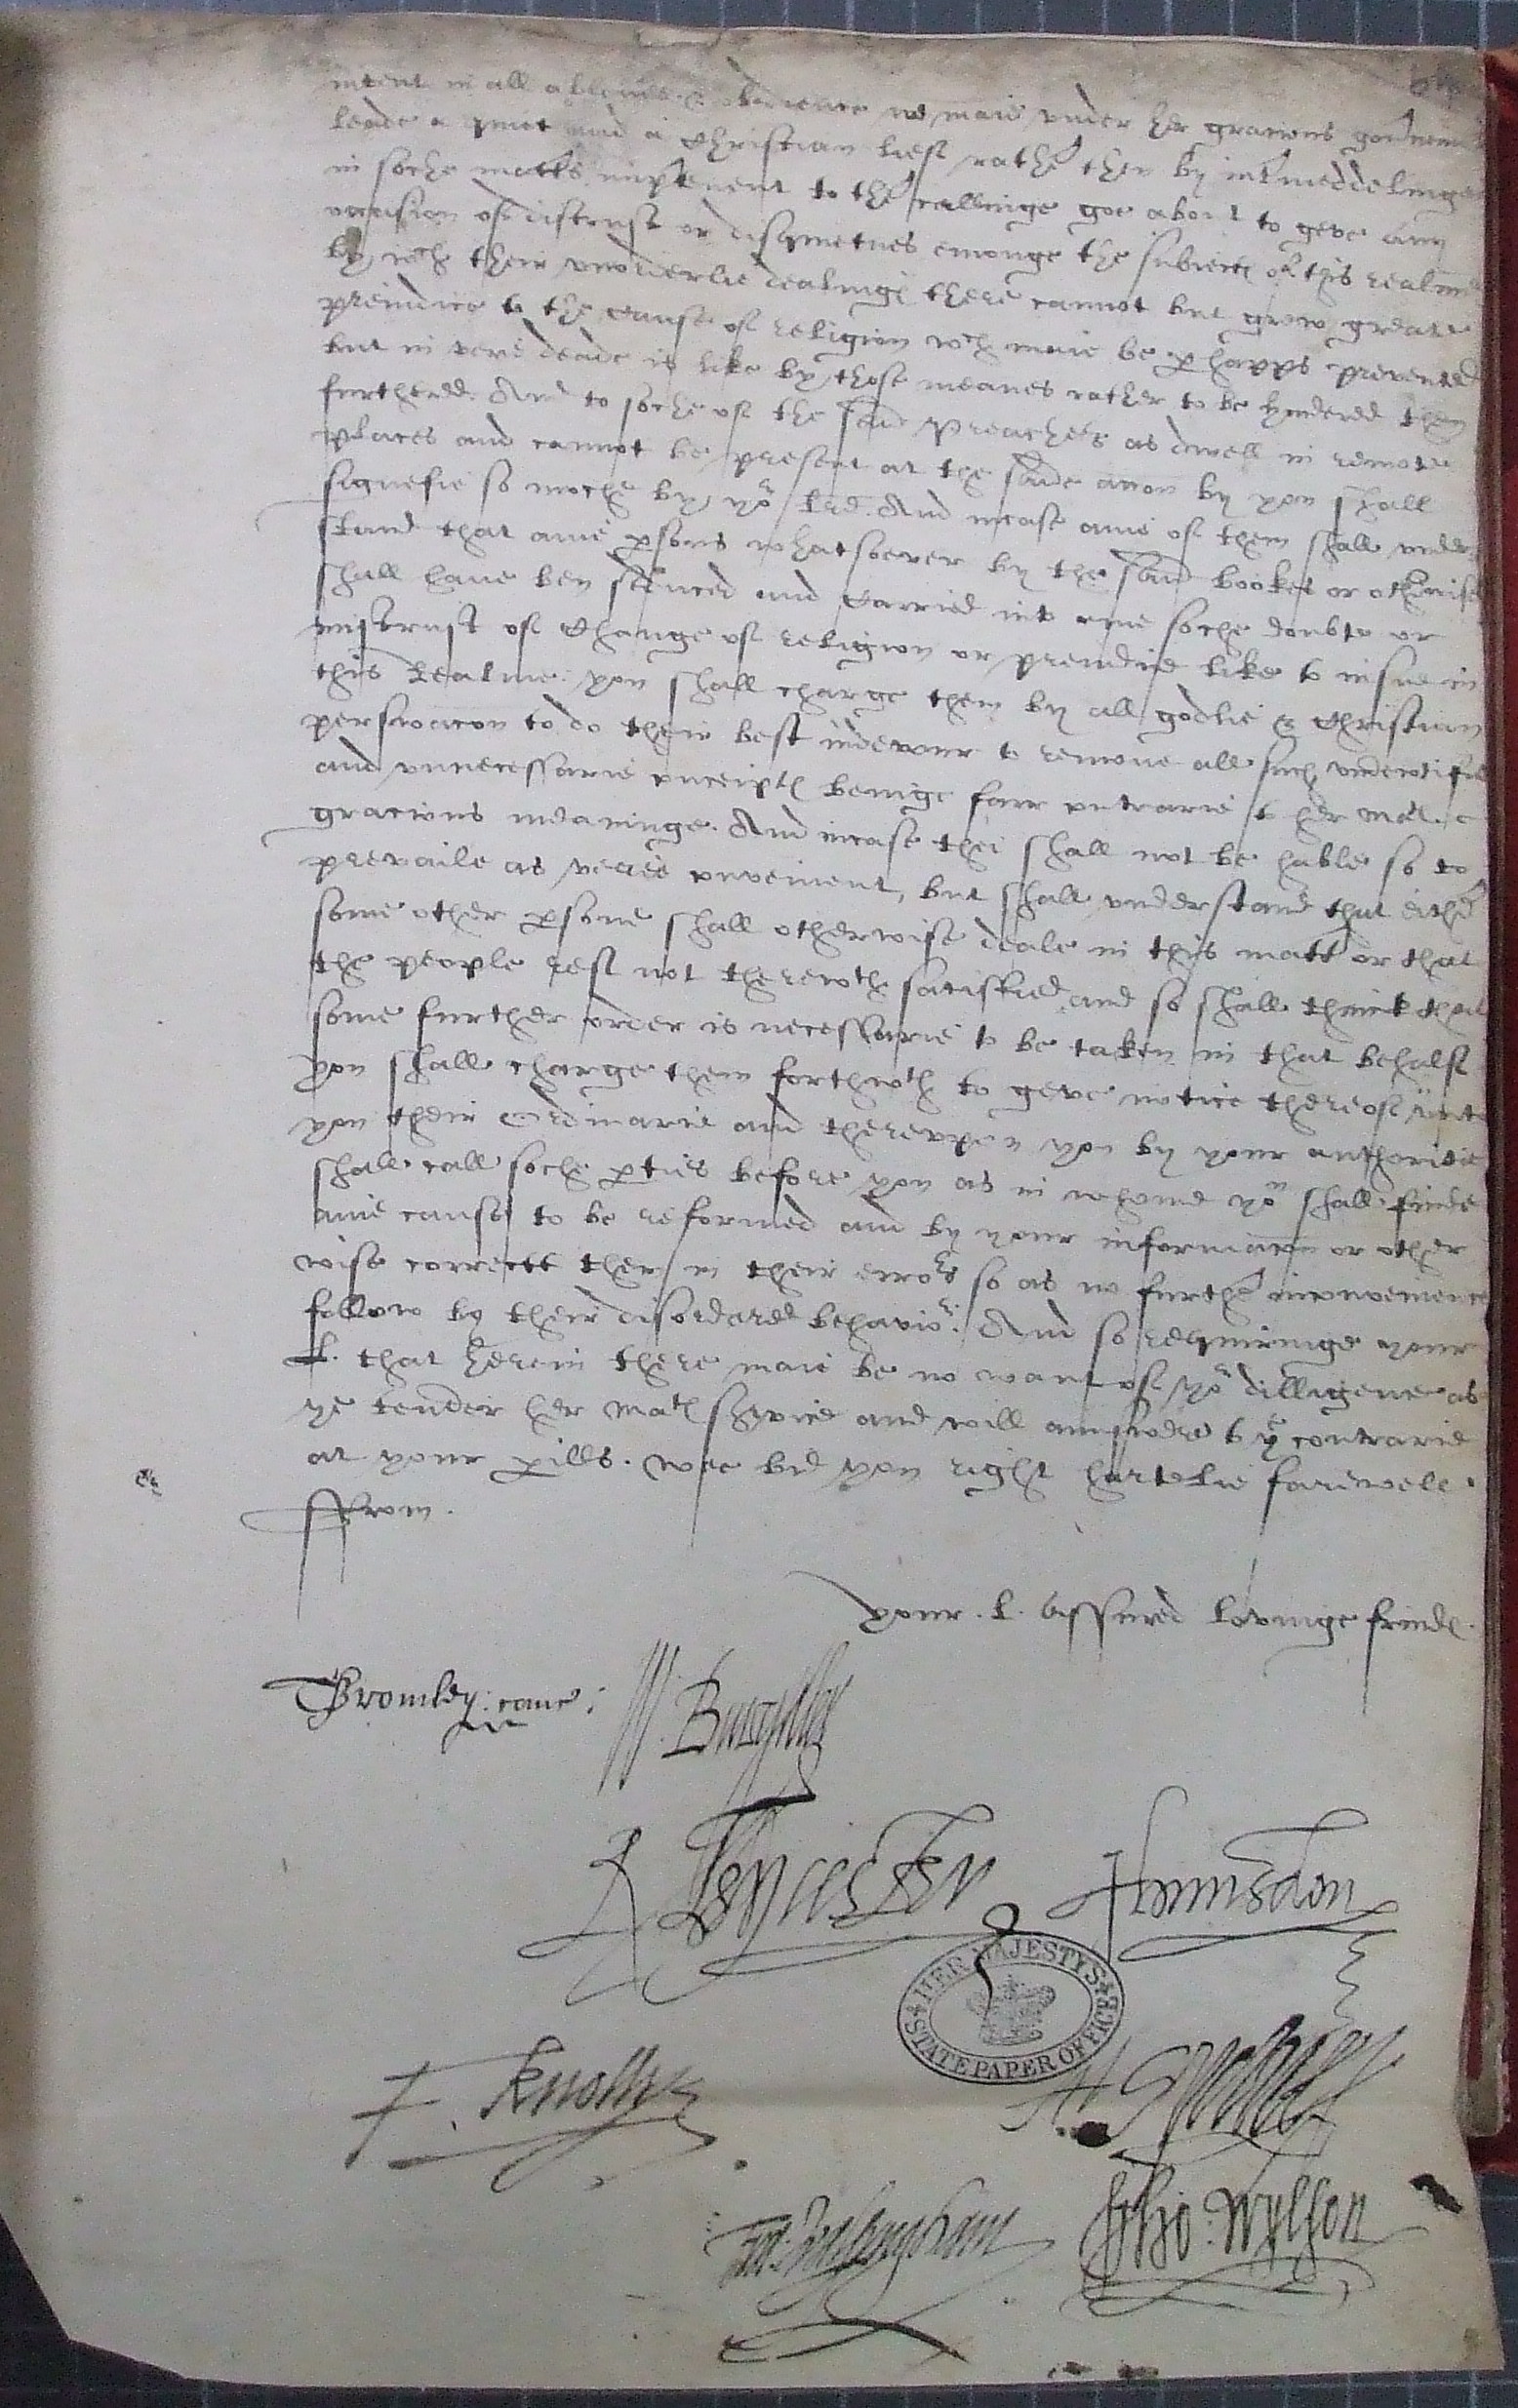 intent in all allowed & obedience we maie vnder her gracious gou'nem
leade a quiet and a Christian lief rathe' then by int'meddelinge
in soche matt's imp'tenent to the' callinge goe about to geve any
occasion of distrust or disquietnes emonge the subiects of this realme
by wch their vnorderlie dealings there cannot but grow greate
preiudice to the cause of religion wch maie be p'happs prevented
but in verie deade is like by those meanes rather to be hindered then
furthered. And to soche of the said preachers as dwell in remote
places and cannot be present at the saide accon by you shall
signefie so moche by yor lres. And incase anie of them shall vnder
stand that anie p'sons whatsoever by the said bookes or otherwise
shall haue ben seduced and carried into anie soche doubte or
mistrust of Change of religion or preiudice like to insue in
this Realme: you shall charge them by all godlie & Christian
perswacon to do their best indevour to remove all such vndewtifull
and vnnecessarie conceipts beinge farr contrarie to her Mats
gracious meaninge. And incase thei shall not be hable so to
prevaile as werre convenient, but shall vnderstand that eithe'
some other p'sone shall otherwise deale in this matt' or that
the people rest not therewth satisfied and so shall thinck that
some further order is necessarie to be taken in that behalf
you shall charge them forthwth to geve notice thereof vnto
you their Ordinarie and therevpon you by your authoritie
shall call soche p'ties before you as in whome you shall finde
anie cause to be reformed and by your informacon or other
wise correcte them in their errors so as no furthe' inconvenience
follow by their disordered behavior. And so requiringe your
L. that herein there maie be no want of yor dilligence as
ye tender her Mats s'vice and will aunswere to ye contrarie
at your p'ills. wee bid you right hartelie farewell.
ffrom.
your .L. assured lovinge frinds.
Bromley: canc:
W. Burghley
R Leycester Hunsdon
HER MAJESTYS STATE PAPER OFFICE
F. Knollys
H Sydney
Fra: Walsyngham Tho: Wylson